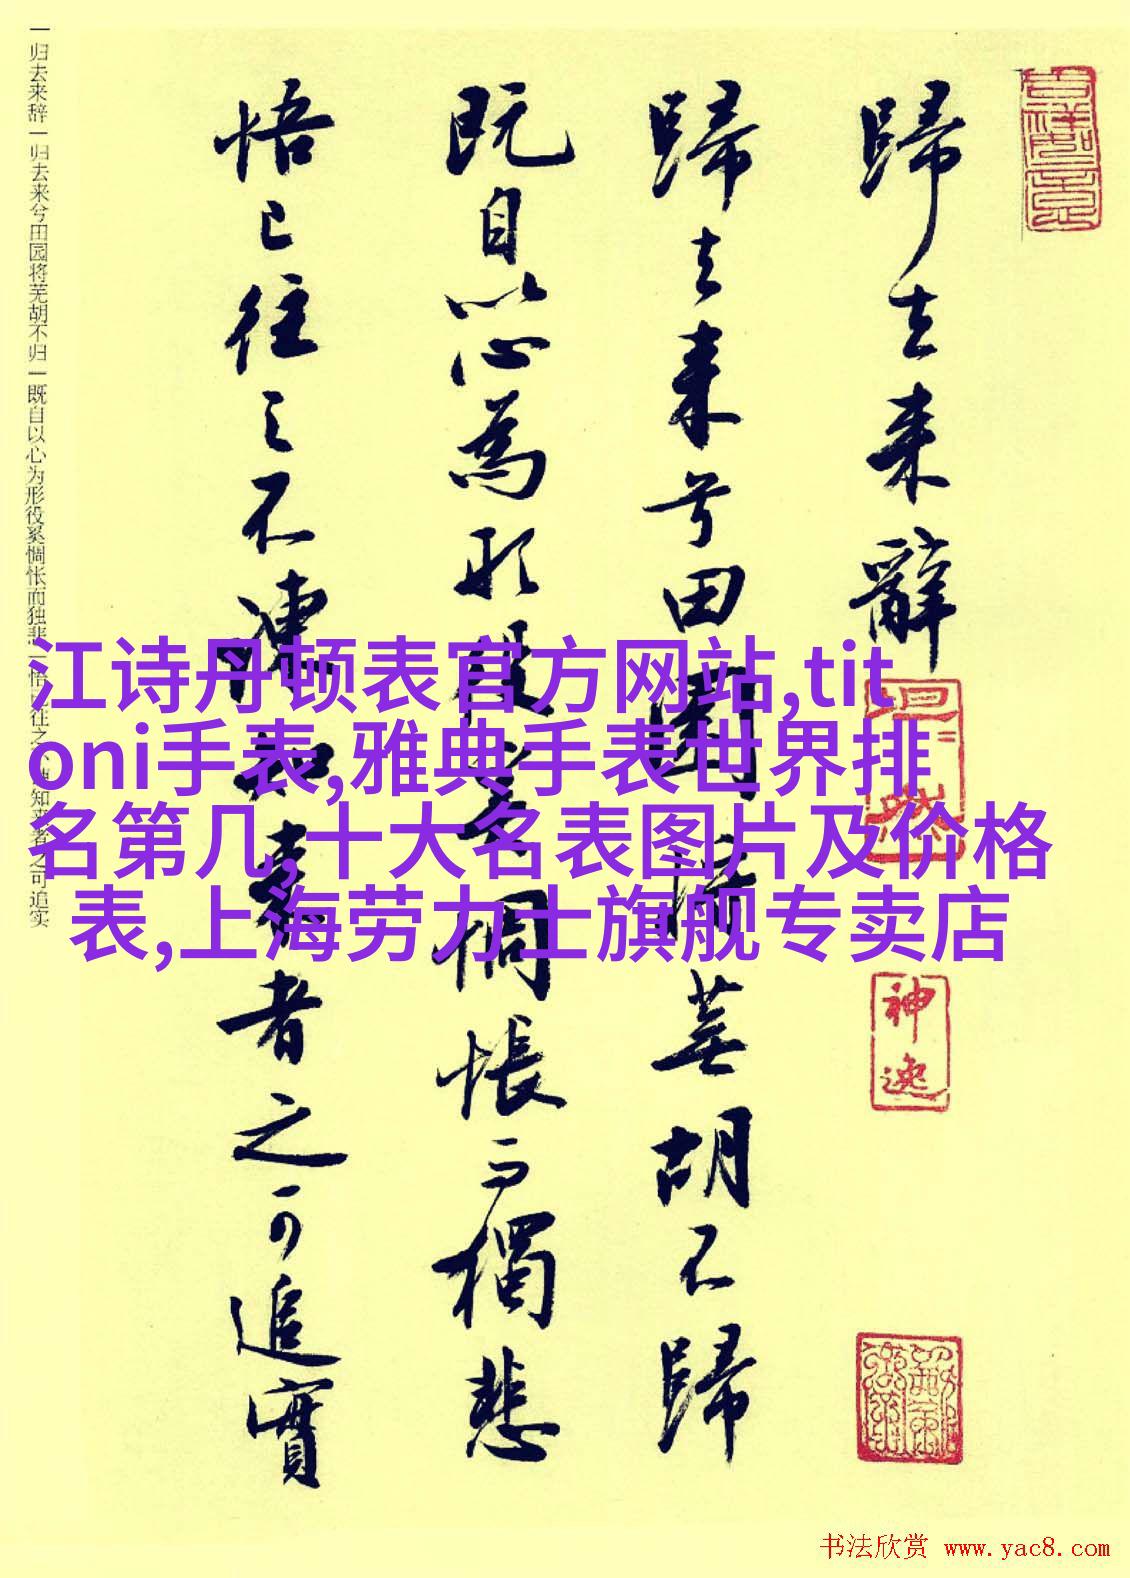 歸去来辭
歸去来兮田園将蕪胡不歸
既自以心為形役奚惆悵而獨悲
悟已往之不諫知来者之可追實
一归去来辞一归去来兮田园将芜胡不归一既自以心为形役奚惆怅而独悲一悟已往之不谏知来者之可追实
江诗丹顿表官方网站,tit
oni手表,雅典手表世界排
名第几,十大名表图片及价格
表,上海劳力士旗舰专卖店
神逸
书法欣赏 www.yac8.com